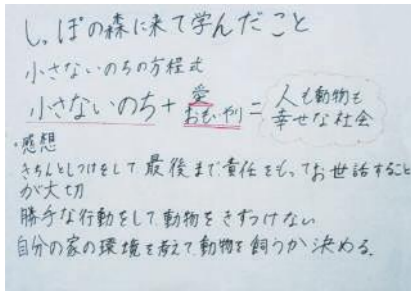 しっぽの森に来て学んだこと
小さないのちの方程式
小さないのち+愛おもいやり=人も動物も幸せな社会
・感想
きちんとしつけをして最後まで責任をもってお世話すること
が大切
勝手な行動をして動物をきずつけない
自分の家の環境を考えて動物を飼うか決める。